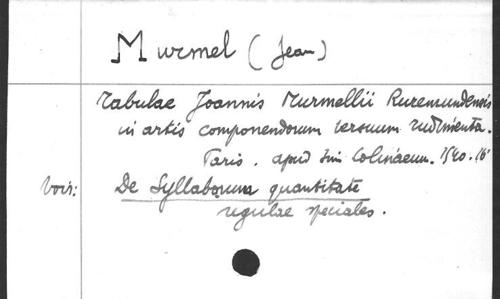 Murmel (Jean)
Tabulae Joannis Murmellii Ruremundensis
in artis componendorum versuum rudimenta.
Paris. apud Sim Colinaeum. 1540. 16°
Voir: De Syllabarum quantitate
regulae speciales.